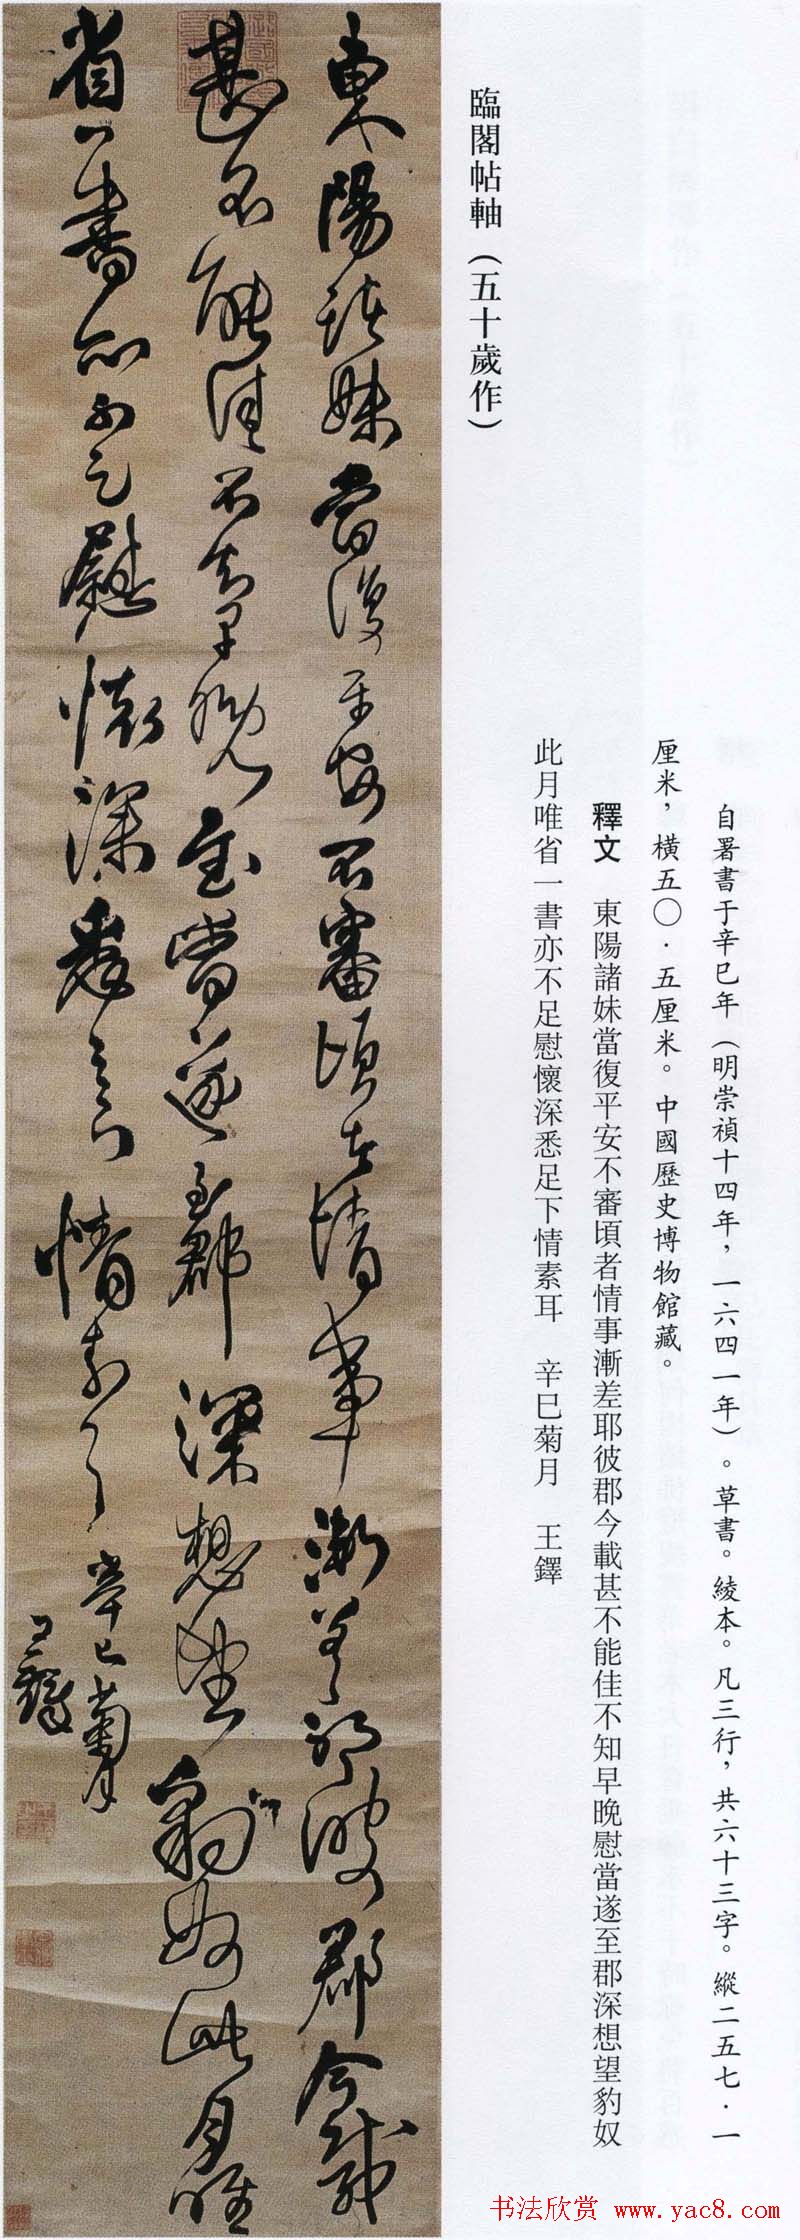 臨閣帖軸（五十歲作）
自署書于辛巳年（明崇禎十四年，一六四一年）。草書。綾本。凡三行，共六十三字。縱二五七·一
厘米，橫五〇·五厘米。中國歷史博物館藏。
釋文　東陽諸妹當復平安不審頃者情事漸差耶彼郡今載甚不能佳不知早晚慰當遂至郡深想望豹奴
此月唯省一書亦不足慰懷深悉足下情素耳　辛巳菊月　王鐸
東陽諸妹當復平安不審頃者情事漸差耶彼郡今載
甚不能佳不知早晚慰當遂至郡深想望豹奴此月唯
省一書亦不足慰懷深悉足下情素耳　辛巳菊月
王鐸
书法欣赏 www.yac8.com